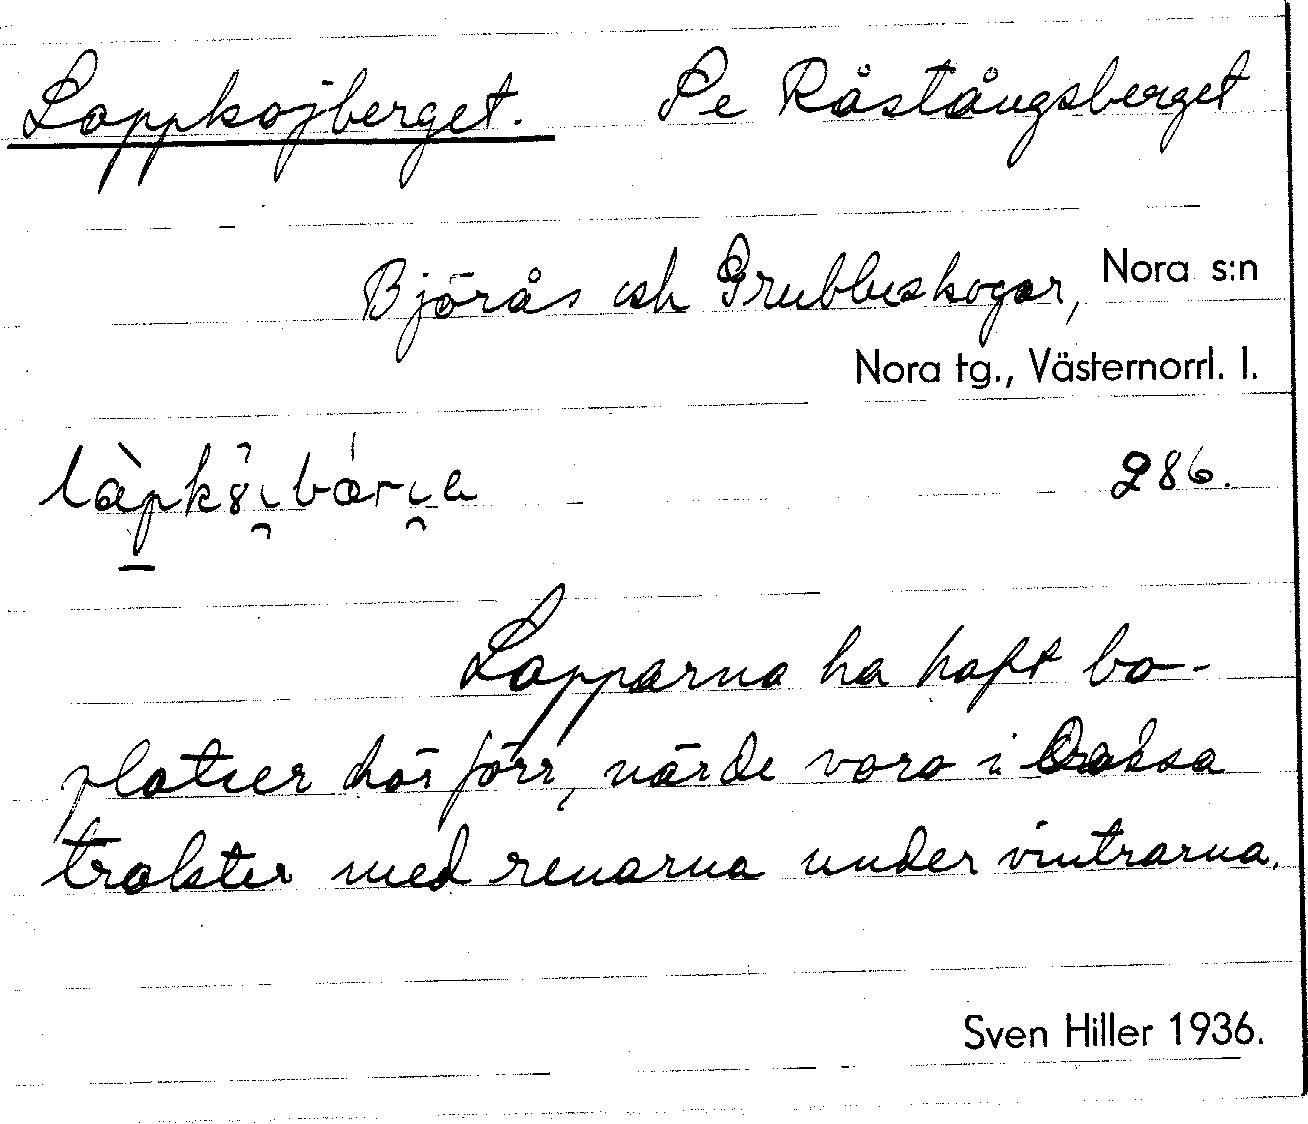 Lappkojberget. Se Råstångsberget
Björås och Grubbeskogar, Nora s:n
Nora tg., Västernorrl. l.
286.
Lapparna ha haft bo-
platser här förr, när de voro i dessa
trakter med renarna under vintrarna.
Sven Hiller 1936.